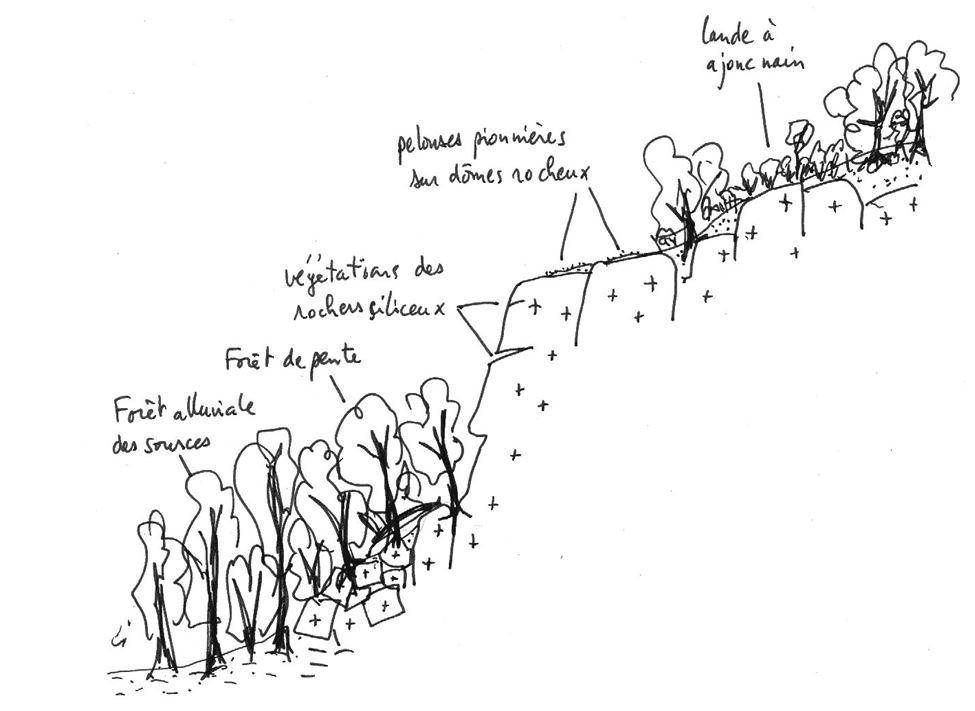 lande à
ajonc nain
pelouses pionnières
sur dômes rocheux
végétations des
rochers siliceux
Forêt de pente
Forêt alluviale
des sources